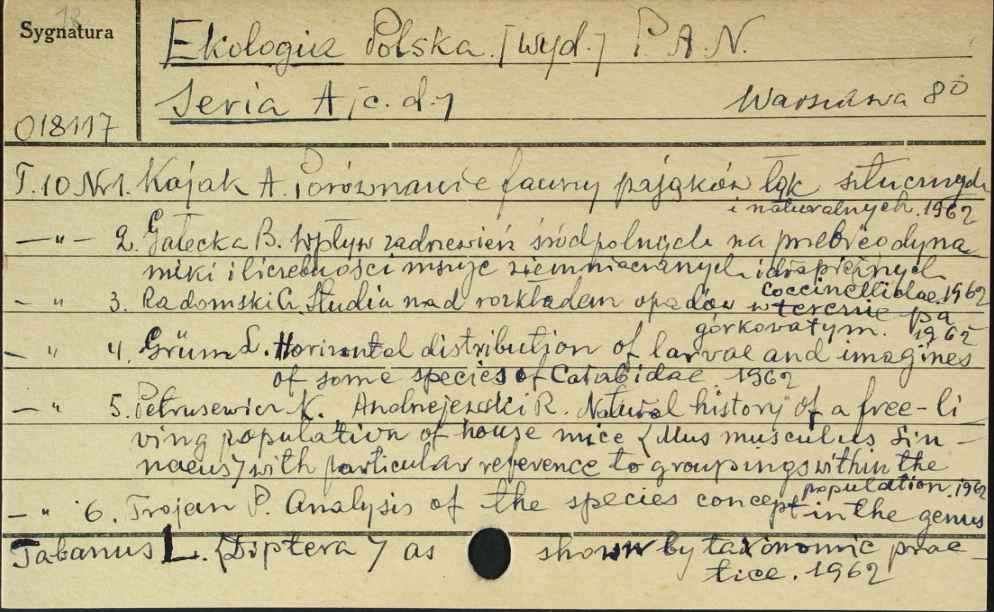 18
Sygnatura
Ekologia Polska. [wyd.] P.A.N.
Seria A [c. d.] Warszawa 80
018117
T. 10 Nr 1. Kajak A. Porównanie fauny pająków łąk sztucznych
i naturalnych. 1962
—"— 2. Gałecka B. Wpływ zadrzewień śródpolnych na przebieg dyna
miki i liczebności mszyc ziemniaczanych i drapieżnych
Coccinellidae. 1962
—"— 3. Radomski G. Studia nad rozkładem opadów w terenie pa
górkowatym. 1962
—"— 4. Grüm L. Horizontal distribution of larvae and imagines
of some species of Carabidae. 1962
—"— 5. Petrusewicz K. Andrzejewski R. Natural history of a free-li
ving population of house mice (Mus musculus Lin-
naeus) with particular reference to groupings within the
population. 1962
—"— 6. Trojan P. Analysis of the species concept in the genus
Tabanus L. (Diptera) as shown by taxonomic prac-
tice. 1962